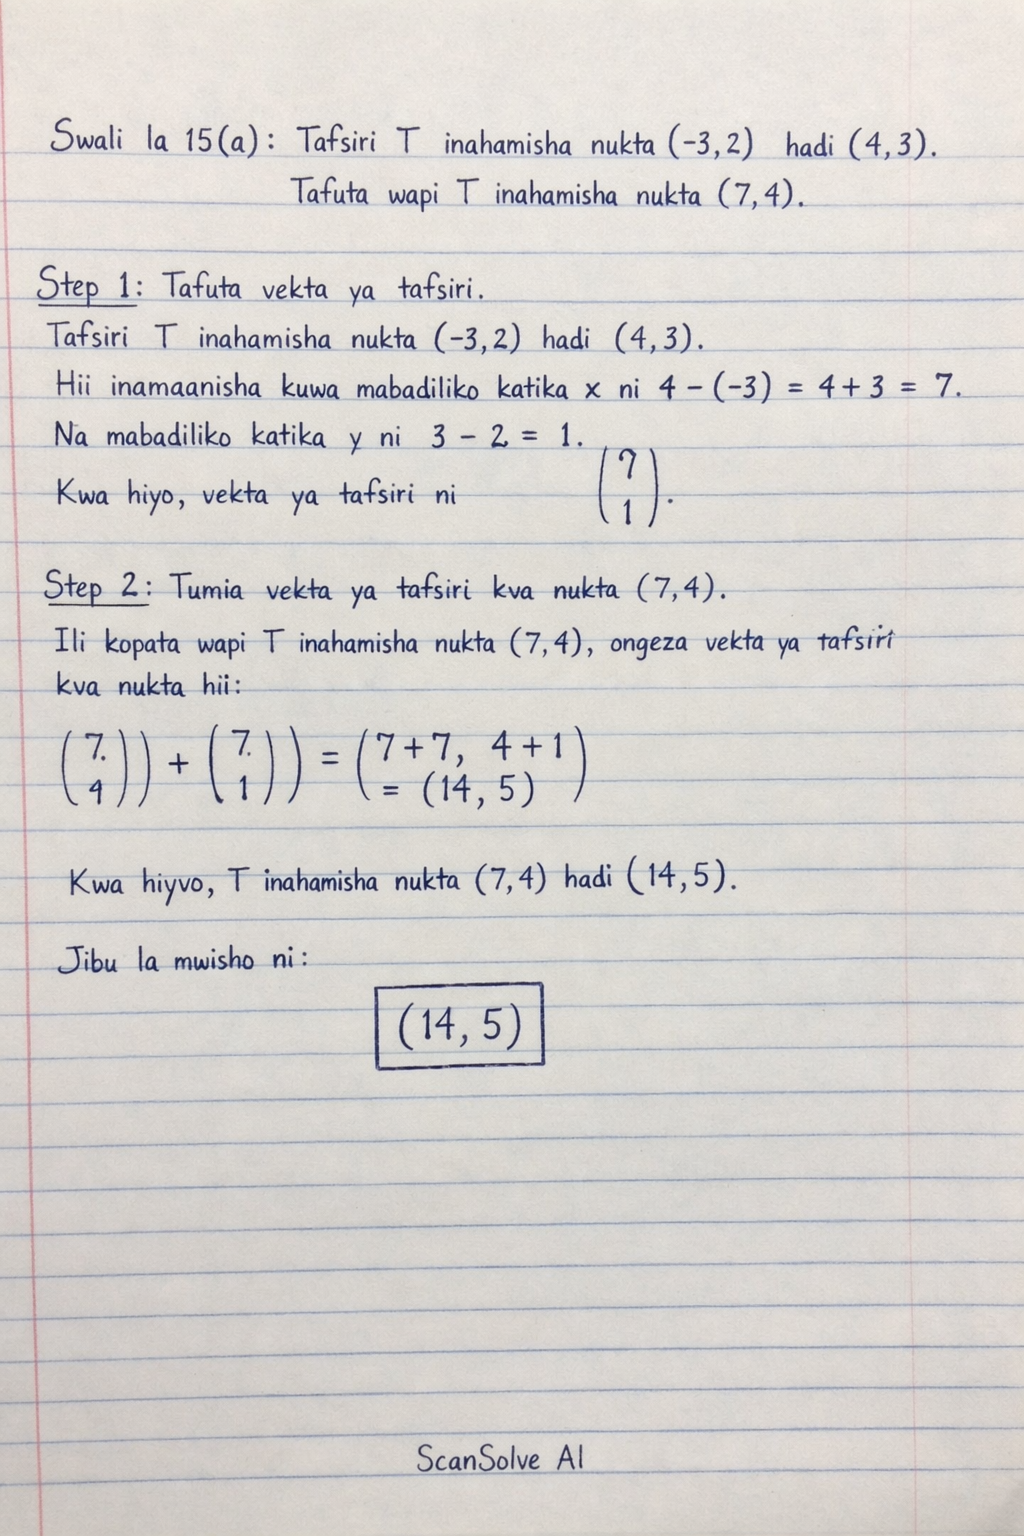 Swali la 15(a): Tafsiri T inahamisha nukta (-3,2) hadi (4,3).
Tafuta wapi T inahamisha nukta (7,4).
Step 1: Tafuta vekta ya tafsiri.
Tafsiri T inahamisha nukta (-3,2) hadi (4,3).
Hii inamaanisha kuwa mabadiliko katika x ni 4 - (-3) = 4 + 3 = 7.
Na mabadiliko katika y ni 3 - 2 = 1.
Kwa hiyo, vekta ya tafsiri ni (7 1).
Step 2: Tumia vekta ya tafsiri kva nukta (7,4).
Ili kopata wapi T inahamisha nukta (7,4), ongeza vekta ya tafsiri
kva nukta hii:
(7. 4)) + (7. 1)) = (7+7, 4+1
= (14, 5))
Kwa hiyvo, T inahamisha nukta (7,4) hadi (14,5).
Jibu la mwisho ni:
(14, 5)
ScanSolve AI